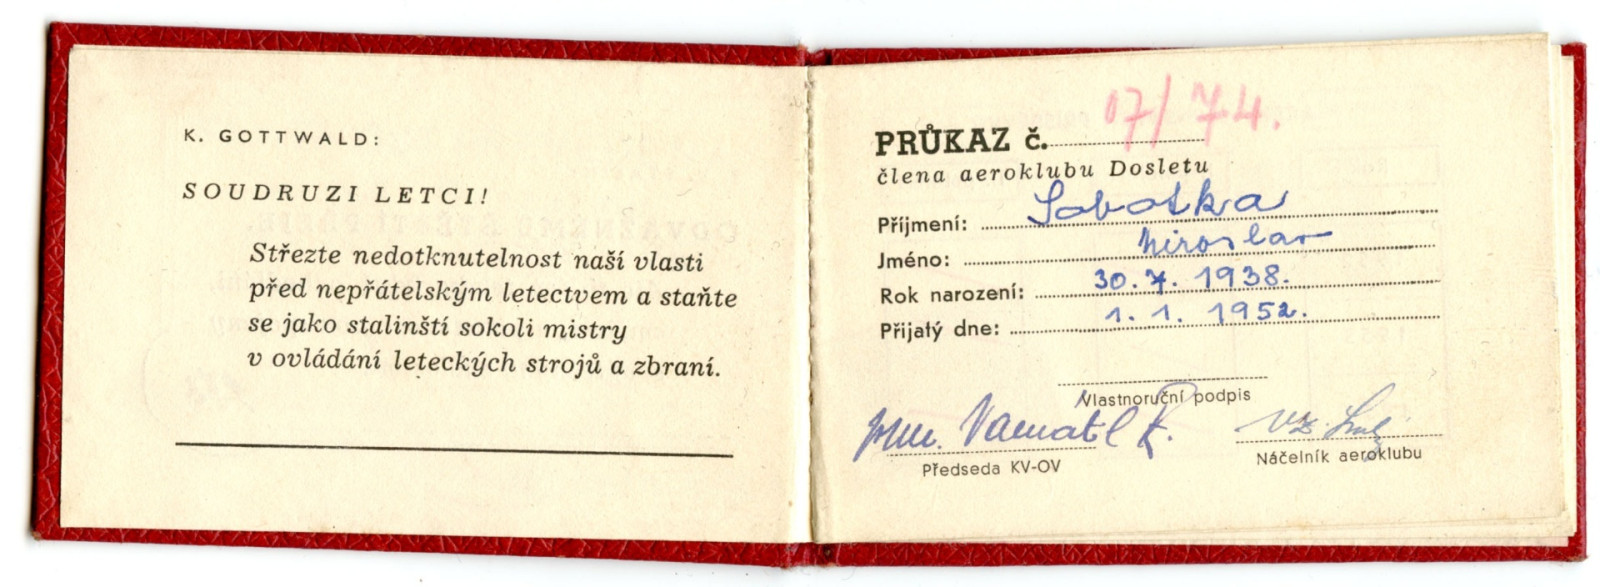 K. GOTTWALD:
SOUDRUZI LETCI!
Střezte nedotknutelnost naší vlasti
před nepřátelským letectvem a staňte
se jako stalinští sokoli mistry
v ovládání leteckých strojů a zbraní.
PRŮKAZ č. 17/74.
člena aeroklubu Dosletu
Příjmení: Sobotka
Jméno: Miroslav
Rok narození: 30. 7. 1938.
Přijatý dne: 1. 1. 1952.
Vlastnoruční podpis
vz.
Předseda KV-OV
Náčelník aeroklubu